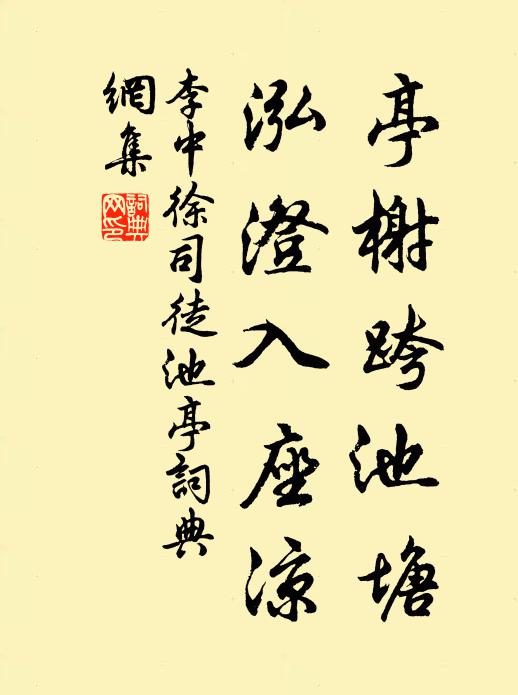 亭榭跨池塘
泓澄入座涼
李中徐司徒池亭詞典
網集
詞典
网印